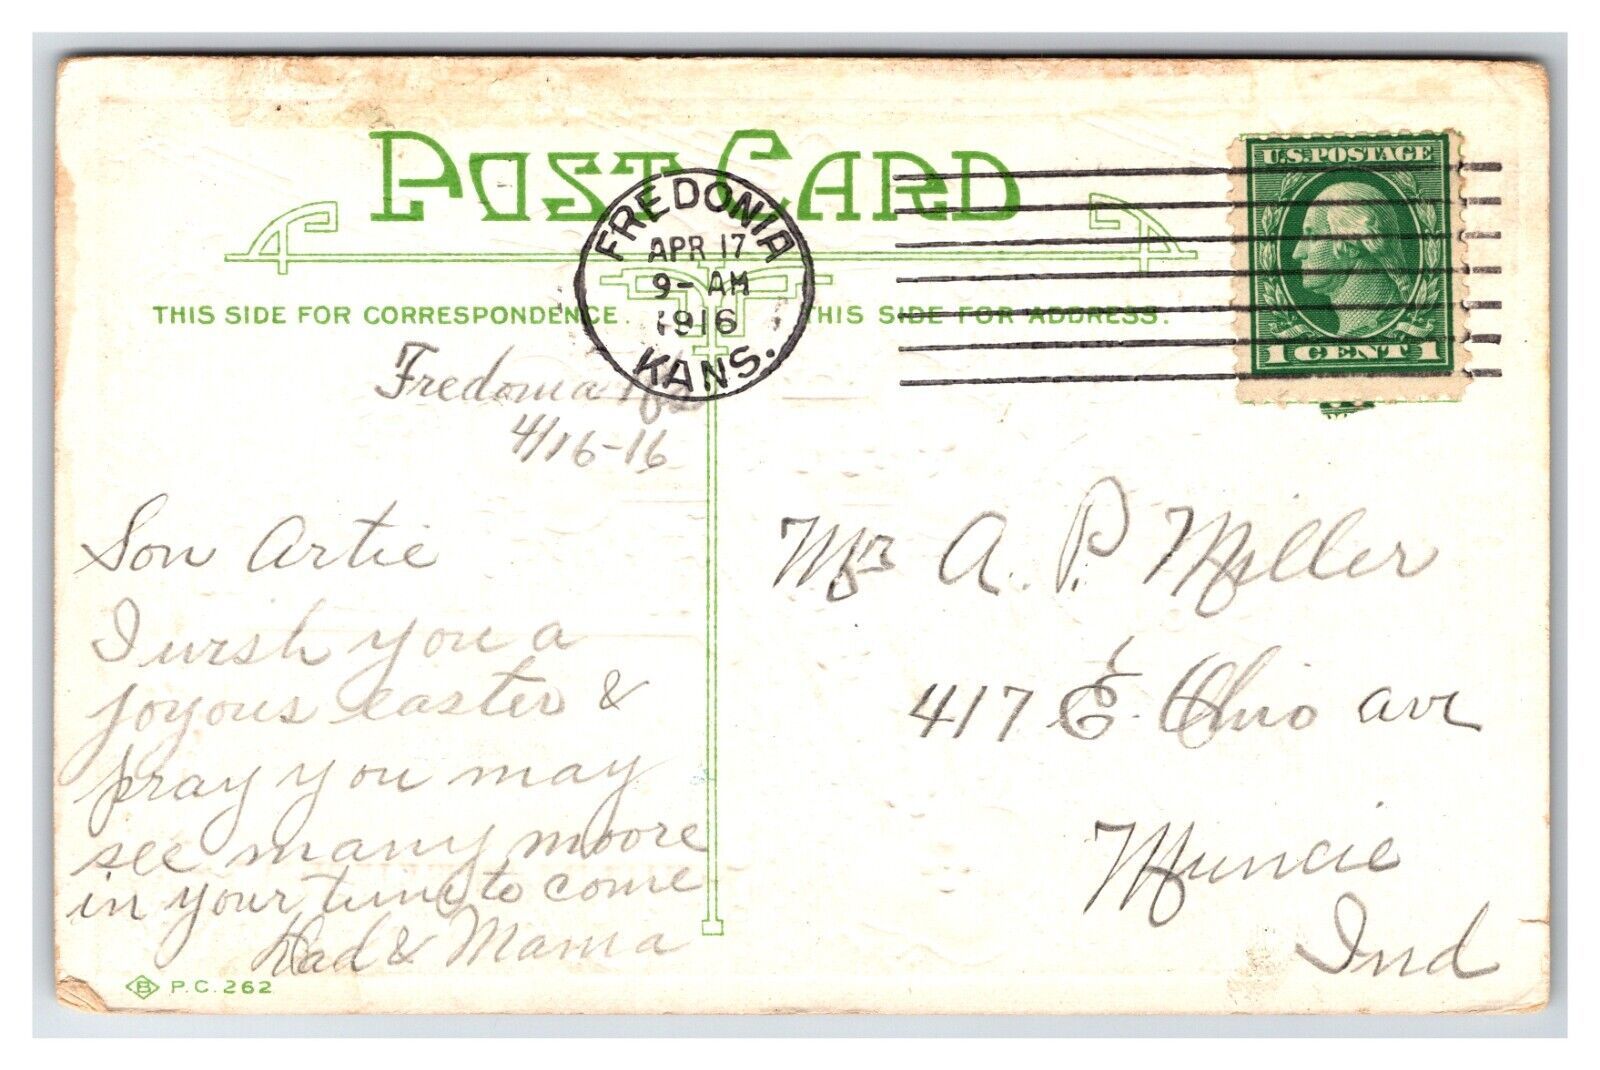 POST CARD
FREDONIA
APR 17
9- AM
1916
KANS.
U.S. POSTAGE
1 CENT 1
THIS SIDE FOR CORRESPONDENCE.
THIS SIDE FOR ADDRESS.
Fredonia
4/16-16
Son Artie
I wish you a
joyous easter &
pray you may
see many moore
in your time to come
Dad & Mama
B P.C. 262
Mr A. P. Miller
417 E. Ohio ave
Muncie
Ind